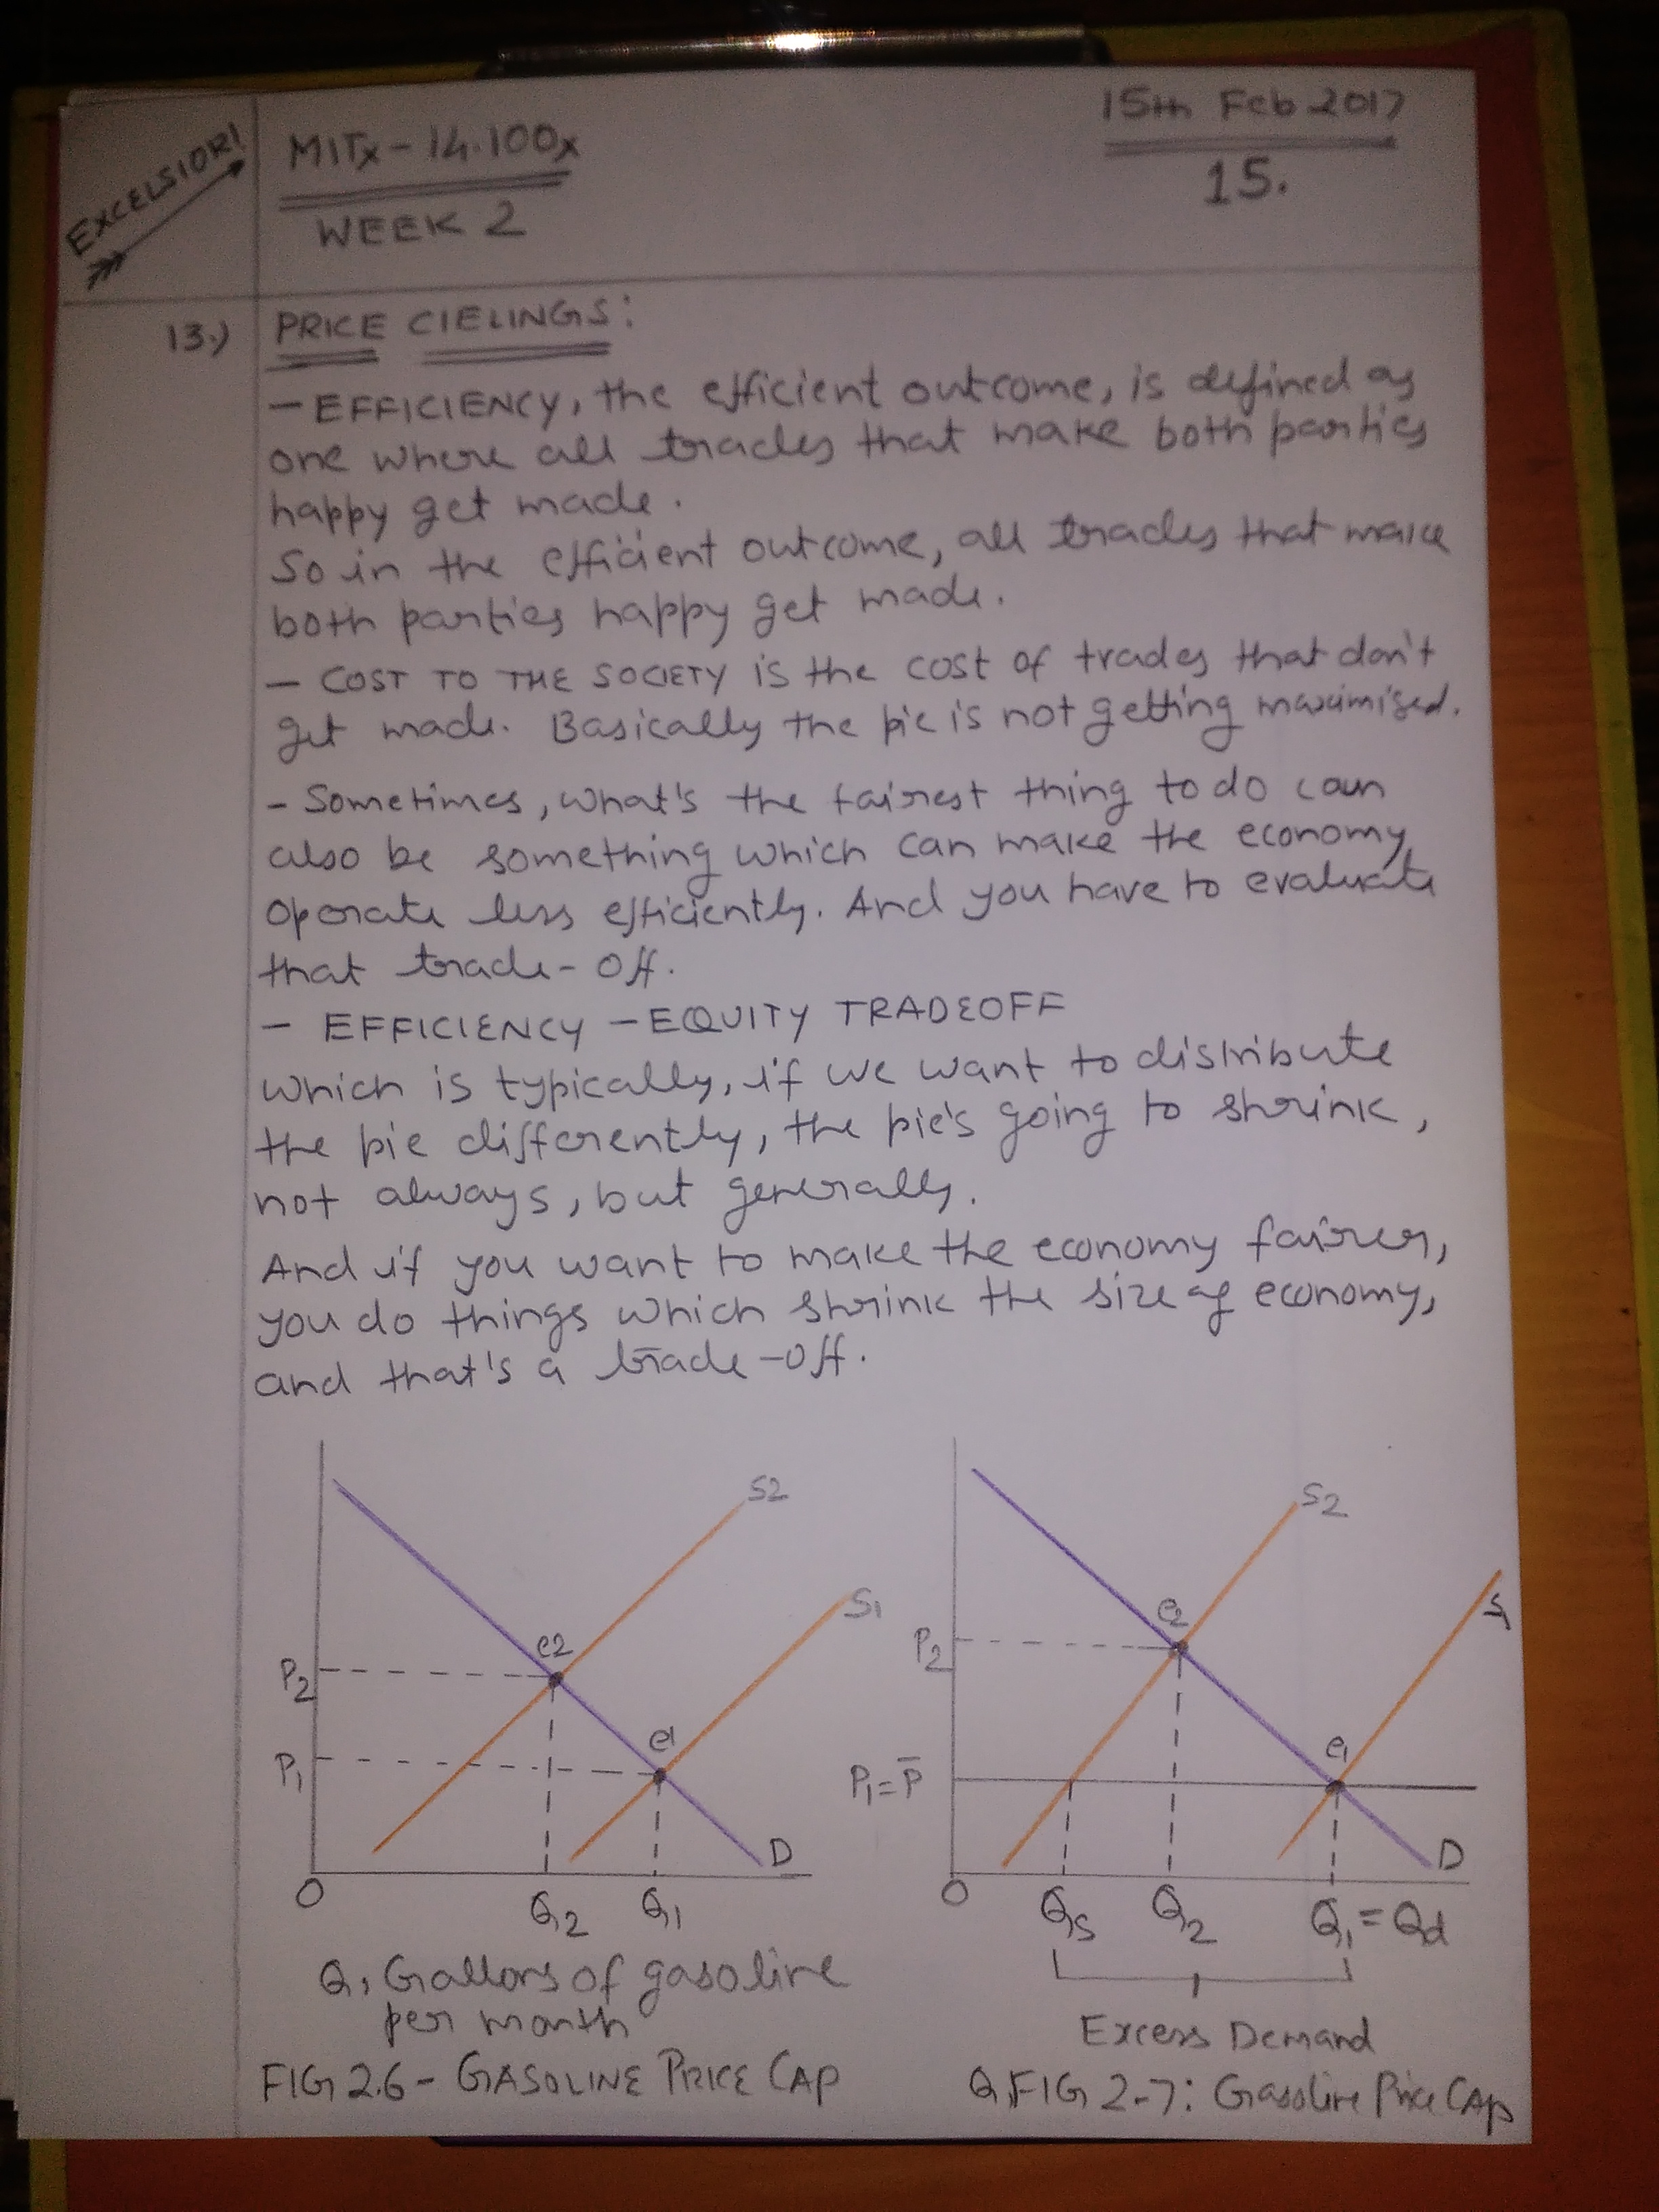 EXCELSIOR!
MITx - 14.100x
WEEK 2
15th Feb 2017
15.
13.) PRICE CIELINGS:
- EFFICIENCY, the efficient outcome, is defined as
one where all trades that make both parties
happy get made.
So in the efficient outcome, all trades that make
both parties happy get made.
- COST TO THE SOCIETY is the cost of trades that don't
get made. Basically the pie is not getting maximised.
- Sometimes, what's the fairest thing to do can
also be something which can make the economy
operate less efficiently. And you have to evaluate
that trade-off.
- EFFICIENCY - EQUITY TRADEOFF
which is typically, if we want to distribute
the pie differently, the pie's going to shrink,
not always, but generally.
And if you want to make the economy fairer,
you do things which shrink the size of economy,
and that's a trade-off.
S2
S1
e2
P2
e1
P1
D
O
Q2 Q1
Q, Gallons of gasoline
per month
FIG 2.6 - GASOLINE PRICE CAP
S2
S1
e2
P2
e1
P1 = P̄
D
O
Qs Q2 Q1 = Qd
Excess Demand
Q, FIG 2-7: Gasoline Price CAP